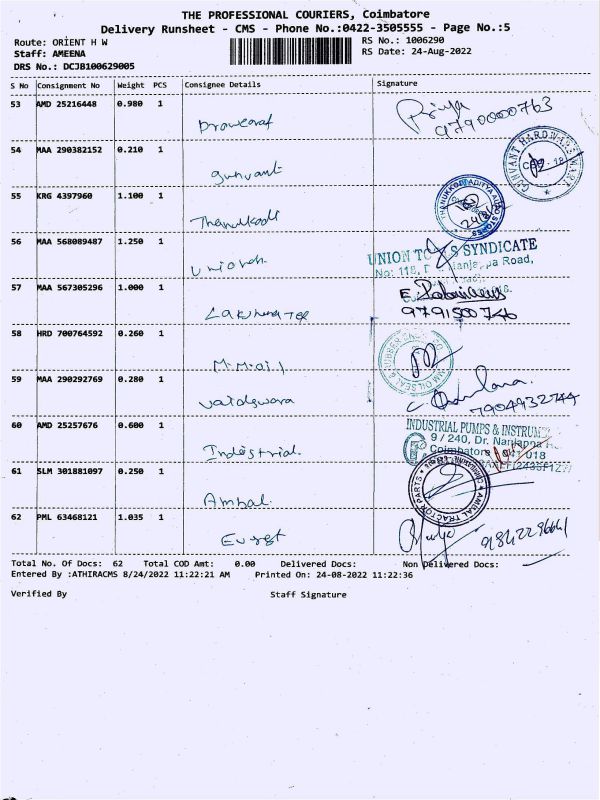 THE PROFESSIONAL COURIERS, Coimbatore
Delivery Runsheet - CMS - Phone No.:0422-3505555 - Page No.:5
Route: ORIENT H W
RS No.: 1006290
Staff: AMEENA
RS Date: 24-Aug-2022
DRS No.: DCJB100629005
S No Consignment No Weight PCS Consignee Details Signature
53 AMD 25216448 0.980 1
Priya
9790000763
54 MAA 290382152 0.210 1
gunvant
GUNVANT HARDWARE MART
CBE - 18
55 KRG 4397960 1.100 1
Thanukkodi
THANUKKODI ADITYA AUTO STORES
24/8/
56 MAA 568089487 1.250 1
Union
UNION SYNDICATE
No: 118, Road,
57 MAA 567305296 1.000 1
9791500746
58 HRD 700764592 0.260 1
M.M.oil
M.M OIL SEAL & RUBBER
59 MAA 290292769 0.280 1
Vaideswara
7904932744
60 AMD 25257676 0.600 1
Industrial
INDUSTRIAL PUMPS & INSTRUM
9 / 240, Dr. Nanjappa
Coimbatore 641 018
61 SLM 301881097 0.250 1
Ambal
AMBAL TRACTOR PARTS
62 PML 63468121 1.035 1
Total No. Of Docs: 62 Total COD Amt: 0.00 Delivered Docs: Non Delivered Docs:
Entered By :ATHIRACMS 8/24/2022 11:22:21 AM Printed On: 24-08-2022 11:22:36
Verified By Staff Signature